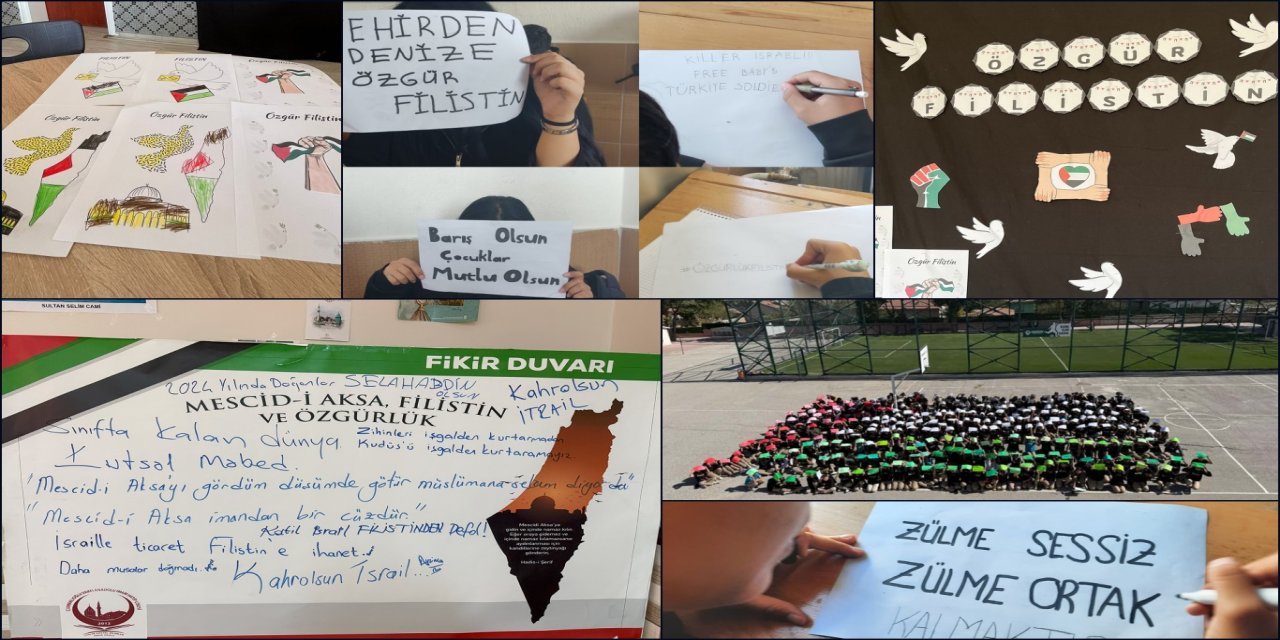 FİLİSTİN
FİLİSTİN
Özgür Filistin
Özgür Filistin
Özgür Filistin
EHİRDEN
DENİZE
ÖZGÜR
FİLİSTİN
KİLLER İSRAEL!!!
FREE BABY'S
TÜRKİYE SOLDİE
Barış Olsun
Çocuklar
Mutlu Olsun
#ÖZGÜRLÜKFİLİSTİN
ÖZGÜR
FİLİSTİN
Özgür Filistin
SULTAN SELİM CAMİİ
FiKiR DUVARI
2024 Yılında Doğanlar SELAHADDİN
OLSUN
Kahrolsun
İTRAİL
MESCİD-İ AKSA, FİLİSTİN
VE ÖZGÜRLÜK
Sınıfta Kalan dünya
Zihinleri işgalden kurtarmadan
Kudüs'ü işgalden kurtaramayız.
Kutsal Mabed.
"Mescid-i Aksa'yı gördüm düşümde götür müslümana selam diyordu"
"Mescid-i Aksa imandan bir cüzdür"
Katil İsrail FİLİSTİNDEN Defol!
İsraille ticaret Filistin'e ihanet
Daha musalar doğmadı..
Kahrolsun İsrail...
Mescidi Aksa'ya
gidin ve içinde namaz kılın.
Eğer oraya gidemez ve
içinde namaz kılamazsanız
aydınlanması için
kandillerine zeytinyağı
gönderin.
Hadis-i Şerif
2012
ZÜLME SESSİZ
ZÜLME ORTAK
KALMAKTIR